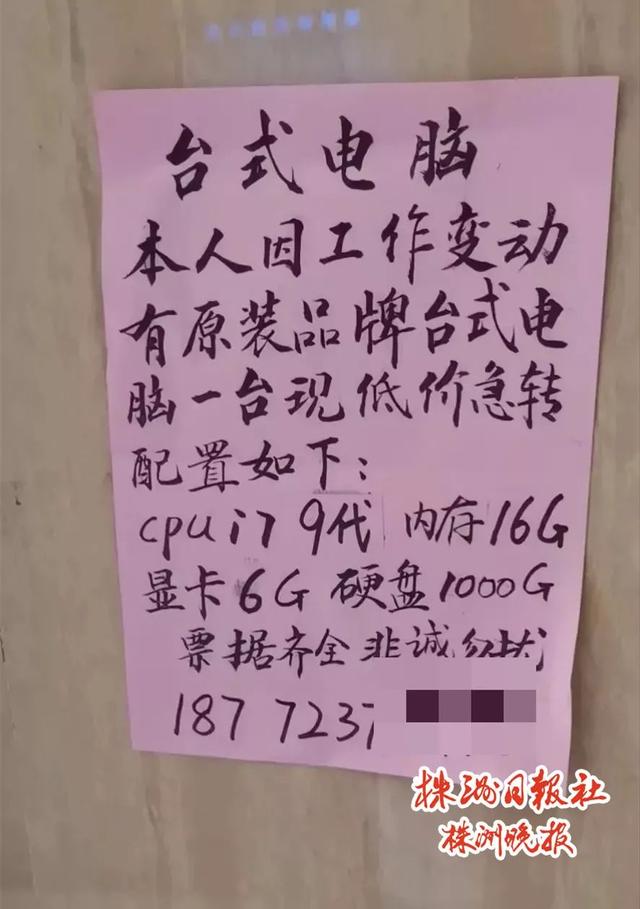 台式电脑
本人因工作变动
有原装品牌台式电
脑一台现低价急转
配置如下：
cpu i7 9代 内存16G
显卡6G 硬盘1000G
票据齐全 非诚勿扰
187 7237
株洲日报社
株洲晚报